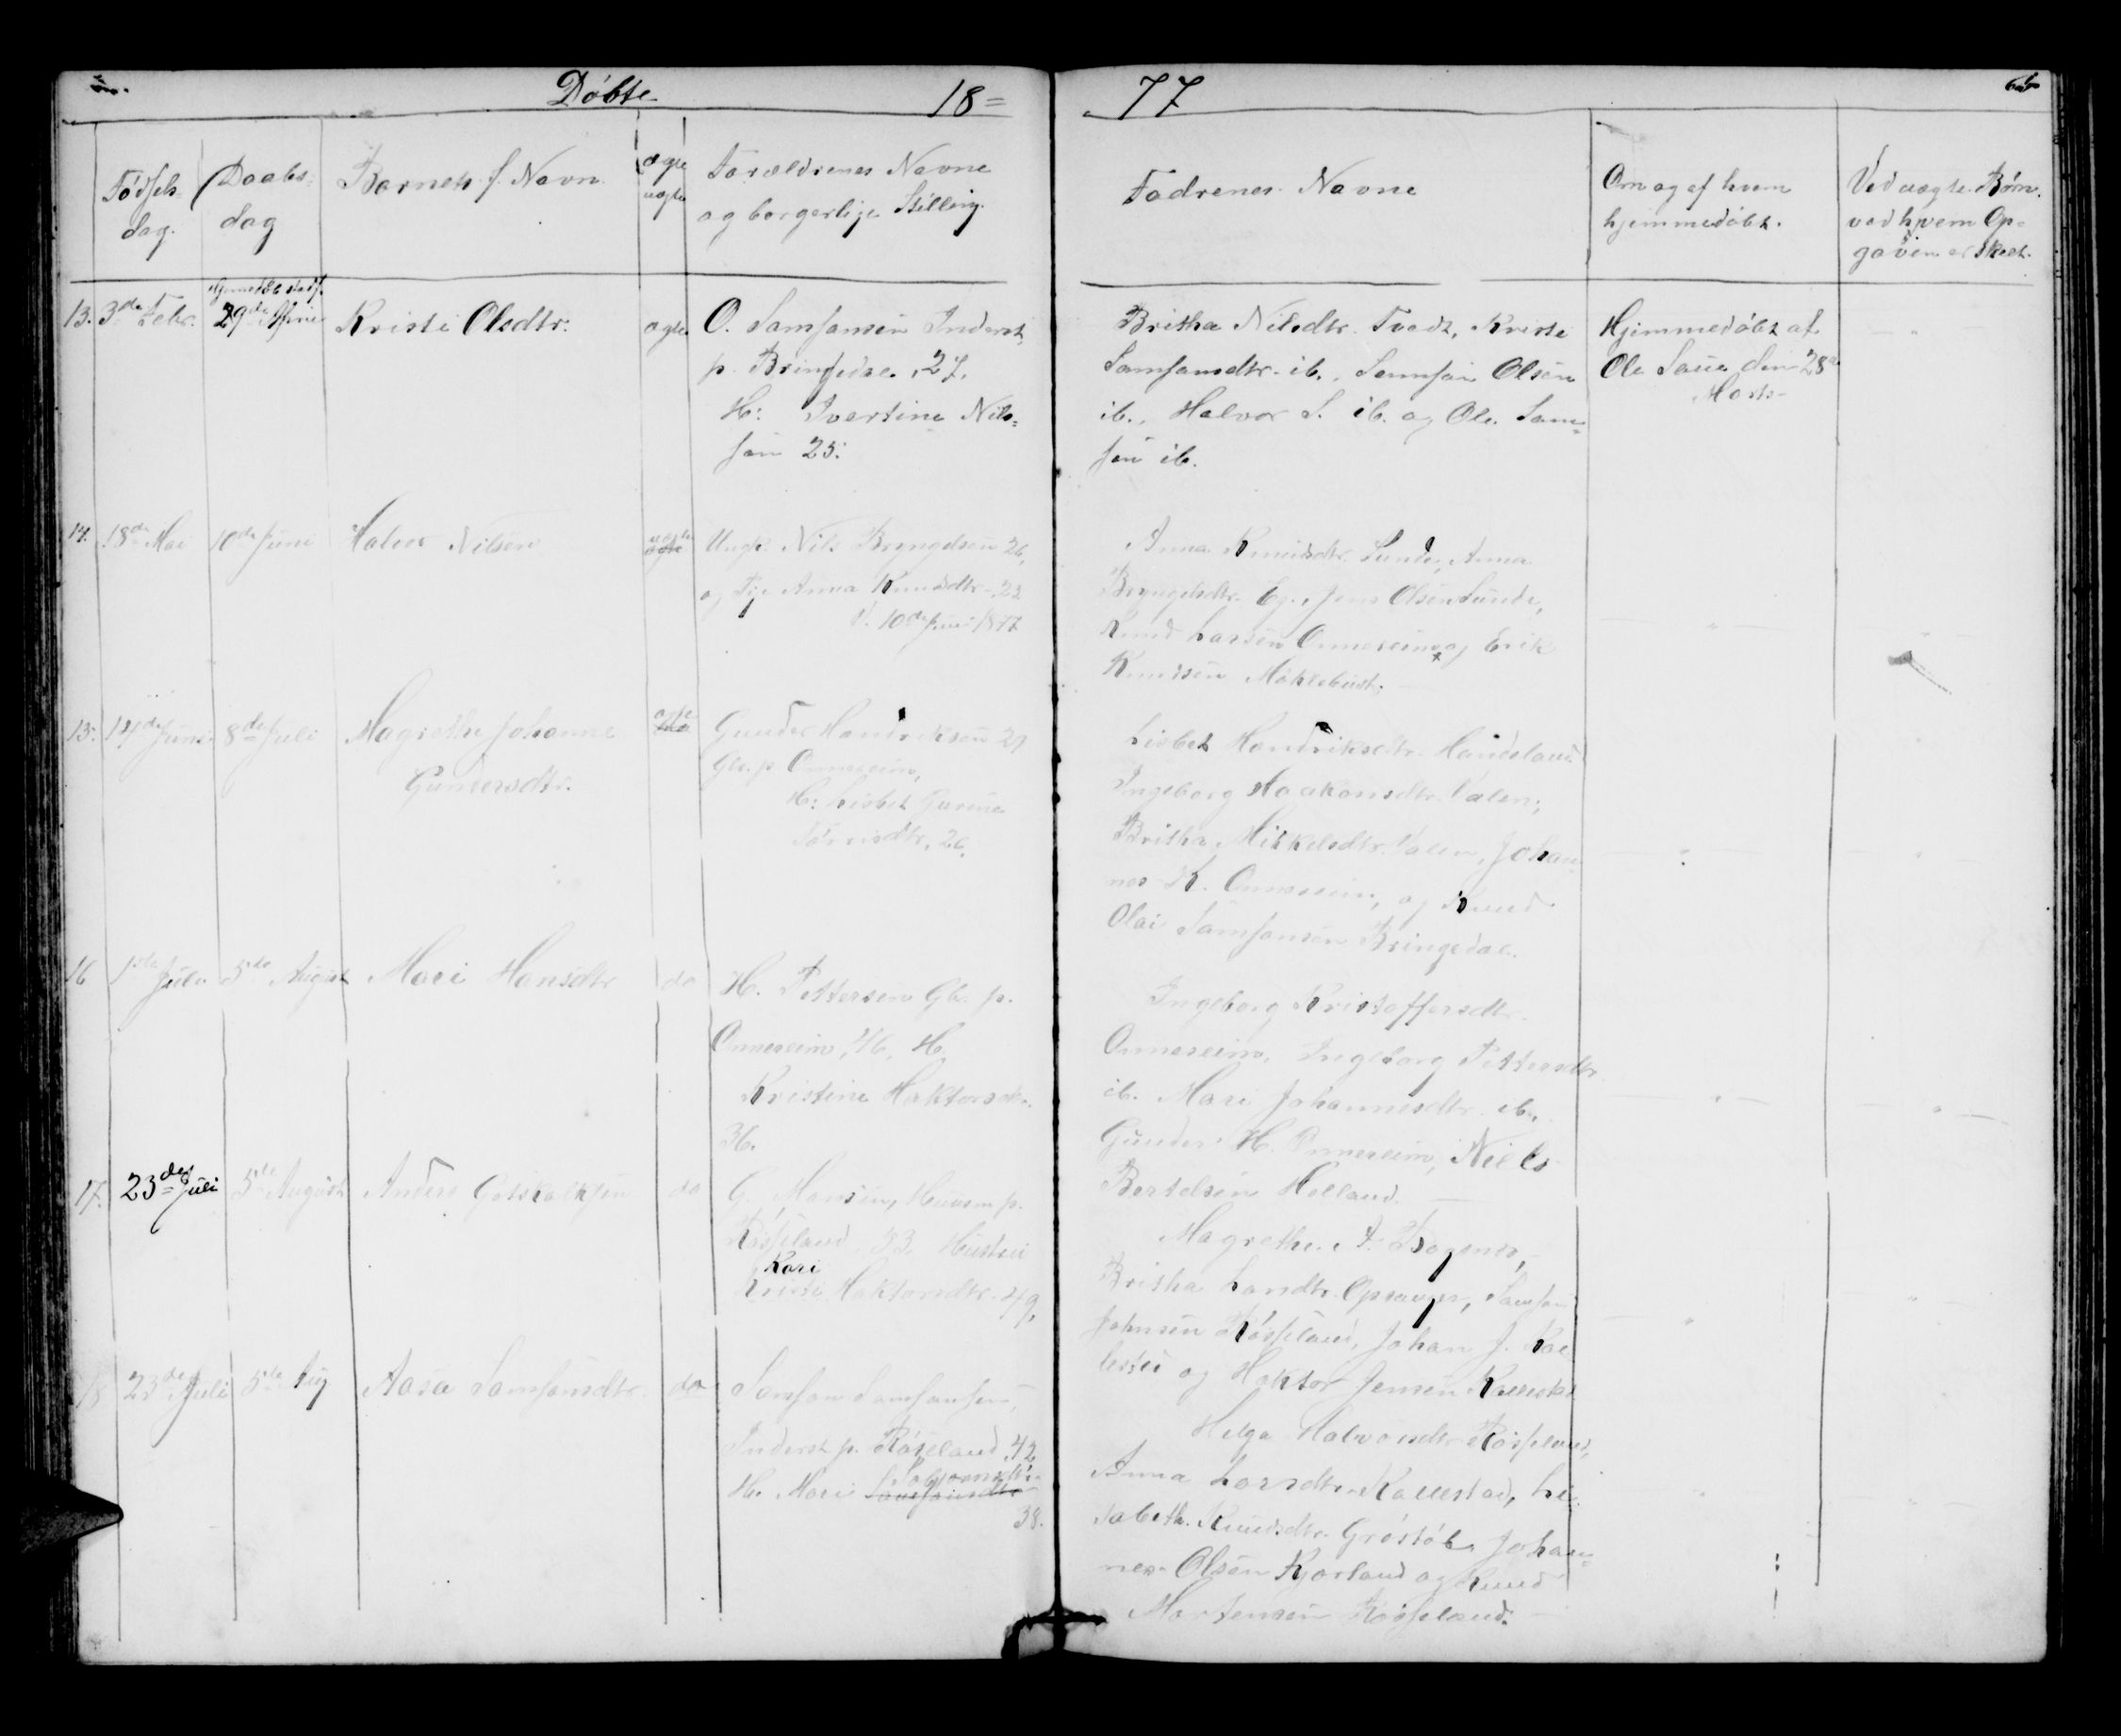 Döbte 18=77 65
Födsels dag.
Daabs- dag
Barnets f. Navn
ægte uægte
Forældrenes Navne og borgerlige Stilling.
Fadrenes Navne
Om og af hvem hjemmedöbt.
Ved uægte Börn. ved hvem Opgaven er skeet.
13. 3de Febr. 29de April Kristi Olsdtr. ægte
O. Samsonsen Inderst
p. Bringedal, 27.
H: Ivertine Nils=
sön 25.
Britha Nilsdtr. Tvedt, Kristi
Samsonsdtr. ib., Samson Olsen
ib., Halvor S. ib. og Ole Sam=
sen ib.
Hjemmedöbt af
Ole Saue den 28de
Marts
14. 18de Mai 10de Juni Halvor Nilsen uægte
Ungk. Nils Bryngelsen 26,
og Pige Anna Knudsdtr. 22
V. 10de Juni 1877
Anna Knudsdtr. Sunde, Anna
Bryngelsdtr. Eg., Jens Olsen Sunde,
Knud Larsen Onnereim og Erik
Knudsen Möklebust.
15. 14de Juni 8de Juli Magrethe Johanne
Gundersdtr.
ægte
Gunder Handriksen 29
Gbr. p. Onnereim,
H: Lisbet Gurine
Törrisdtr. 26.
Lisbet Handriksdtr. Handeland
Ingeborg Haakonsdtr. Valen,
Britha Mikkelsdtr. Valen, Johan
nes K. Onnereim, og Knud
Olai Samsonsen Bringedal.
16 1ste Juli 5de August Mari Hansdtr do
H. Pettersen Gbr. p.
Onnereim, 46, H.
Kristine Haktorsdtr.
36.
Ingeborg Kristoffersdtr.
Onnereim, Ingeborg Pettersdtr
ib. Mari Johannesdtr. ib.,
Gunder H. Onnereim, Niels
Bertelsen Helland.
17. 23de Juli 5de August Anders Gotskalksen do
G. Monsen, Huusm p.
Rösseland 53. Hustru
Kari
Kristi Haktorsdtr. 49,
Magrethe A.
Britha Larsdtr. Opsanger, Samson
Johnsen Rösseland, Johan J.
og Haktor Jensen
18 23de Juli 5de Aug Aasa Samsonsdtr. do
Samson Samsonsen,
Inderst p. Röseland 42,
H. Mari Samsonsdtr
38.
Helga Halvorsdtr. Rösseland,
Anna Larsdtr. Kallestad, Li=
sabeth Knudsdtr. Johan=
nes Olsen og Knud
Mortensen Rösseland.